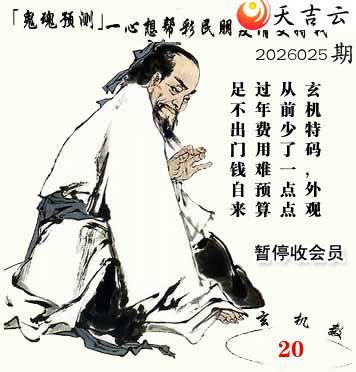 「鬼魂预测」一心想帮彩民朋
天吉云
2026025期
玄机特码，外观
从前少了一点点
过年费用难预算
足不出门钱自来
暂停收会员
玄机
20